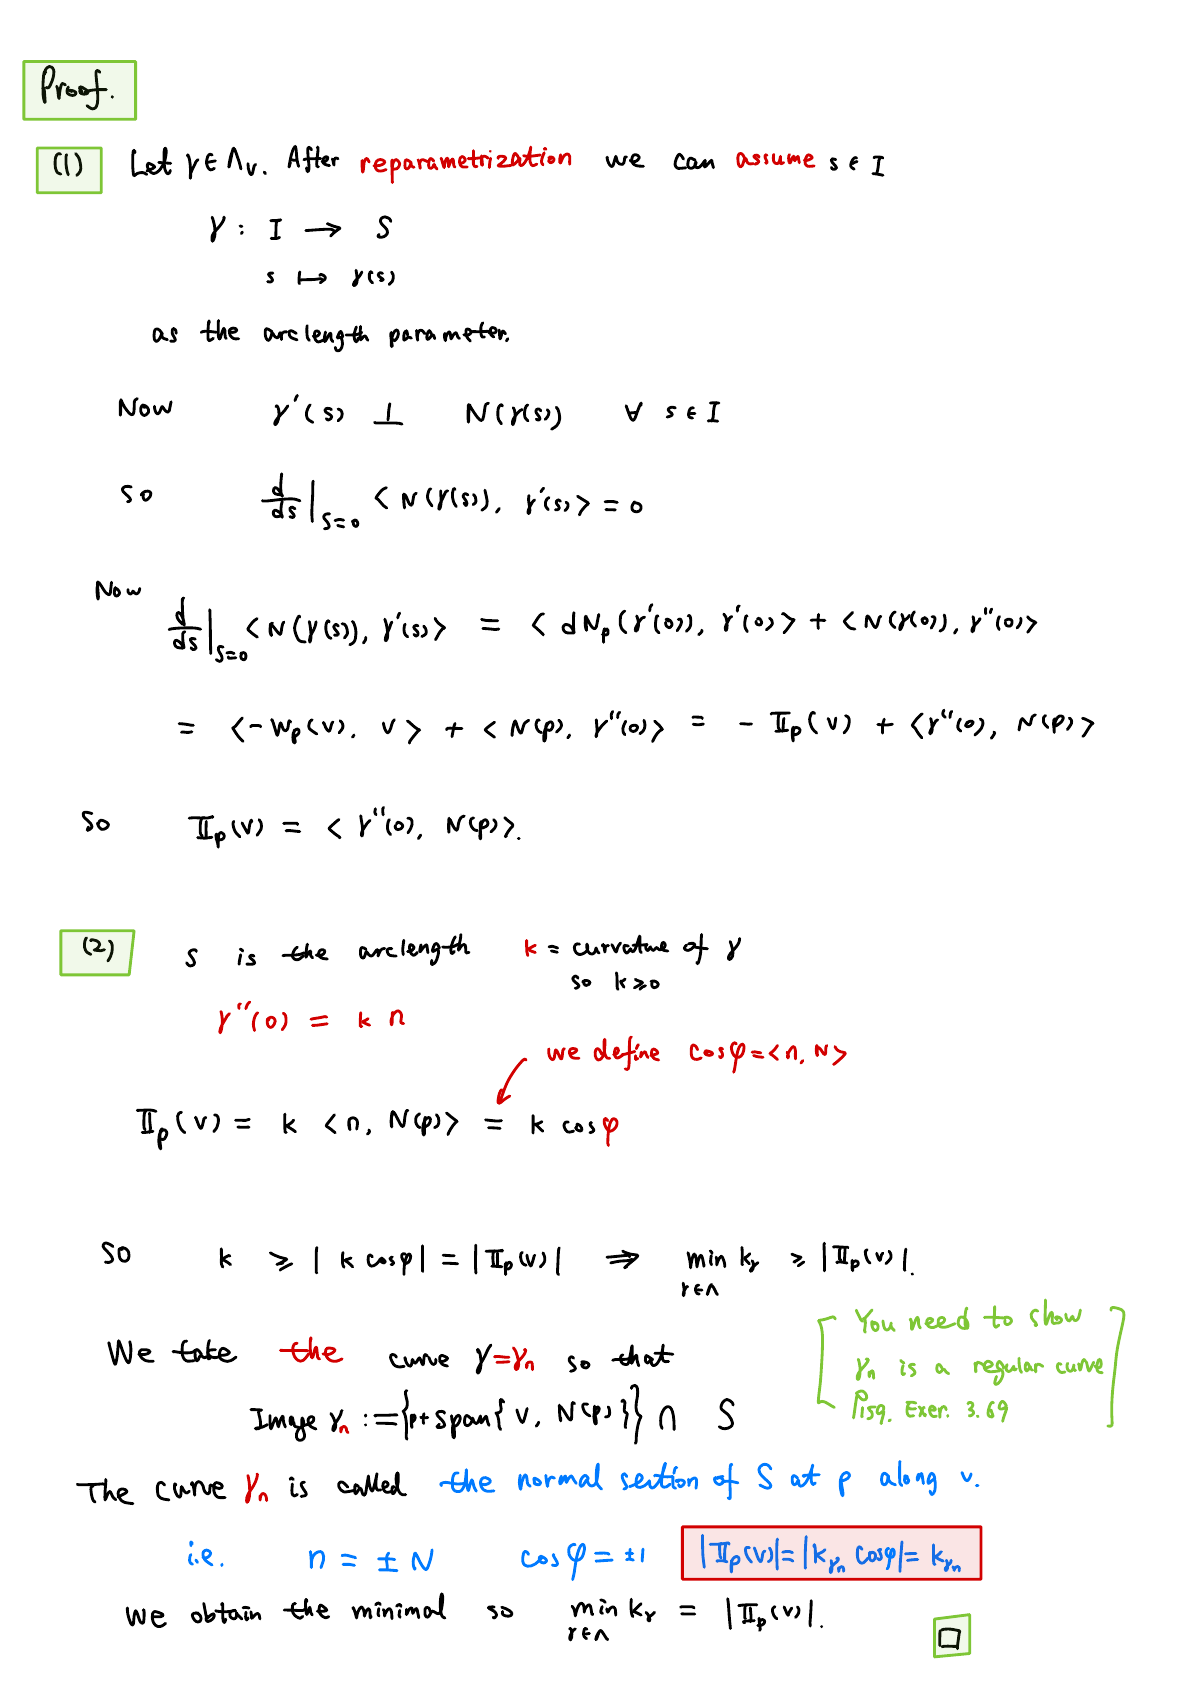 Proof.
(1) Let γ ∈ Λ_v. After reparametrization we can assume s ∈ I
γ : I → S
s ↦ γ(s)
as the arclength parameter.
Now γ'(s) ⊥ N(γ(s)) ∀ s ∈ I
so d/ds|_{s=0} <N(γ(s)), γ'(s)> = 0
Now
d/ds|_{s=0} <N(γ(s)), γ'(s)> = <dN_p(γ'(0)), γ'(0)> + <N(γ(0)), γ''(0)>
= <-W_p(v), v> + <N(p), γ''(0)> = - II_p(v) + <γ''(0), N(p)>
So II_p(v) = <γ''(0), N(p)>.
(2) s is the arclength k = curvature of γ
so k ≥ 0
γ''(0) = k n
we define cosφ = <n, N>
II_p(v) = k <n, N(p)> = k cosφ
So k ≥ |k cosφ| = |II_p(v)| ⇒ min_{γ∈Λ} k_γ ≥ |II_p(v)|.
You need to show
γ_n is a regular curve
Pisq. Exer. 3.69
We take the curve γ=γ_n so that
Image γ_n := {p+span{v, N(p)}} ∩ S
The curve γ_n is called the normal section of S at p along v.
i.e. n = ± N cosφ = ±1 |II_p(v)| = |k_{γ_n} cosφ| = k_{γ_n}
We obtain the minimal so min_{γ∈Λ} k_γ = |II_p(v)|.
□